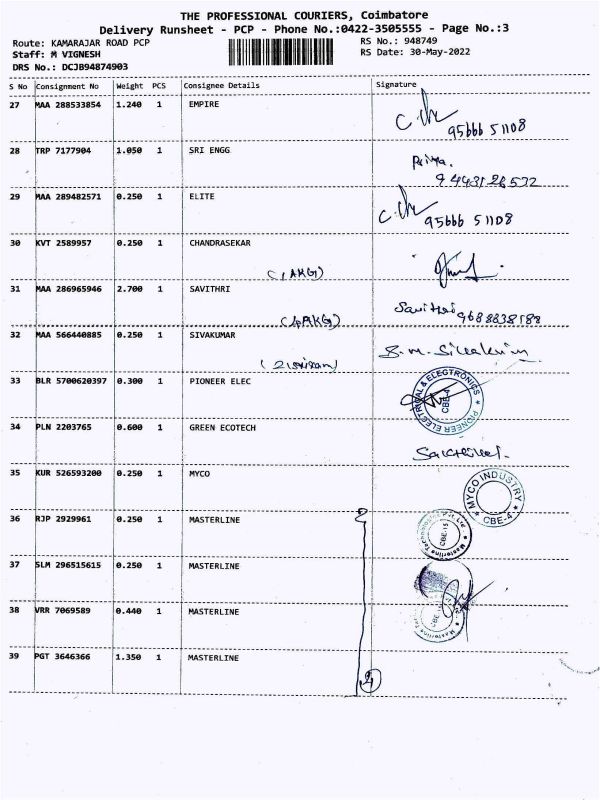 THE PROFESSIONAL COURIERS, Coimbatore
Delivery Runsheet - PCP - Phone No.:0422-3505555 - Page No.:3
Route: KAMARAJAR ROAD PCP
RS No.: 948749
Staff: M VIGNESH
RS Date: 30-May-2022
DRS No.: DCJB94874903
S No Consignment No Weight PCS Consignee Details Signature
27 MAA 288533854 1.240 1 EMPIRE
95666 51108
28 TRP 7177904 1.050 1 SRI ENGG
Priya.
29 MAA 289482571 0.250 1 ELITE
95666 51108
30 KVT 2589957 0.250 1 CHANDRASEKAR
31 MAA 286965946 2.700 1 SAVITHRI
Savithri
32 MAA 566440885 0.250 1 SIVAKUMAR
33 BLR 5700620397 0.300 1 PIONEER ELEC
PIONEER ELECTRICAL & ELECTRONICS
CBE-4
34 PLN 2203765 0.600 1 GREEN ECOTECH
35 KUR 526593200 0.250 1 MYCO
MYCO INDUSTRY
CBE-4
36 RJP 2929961 0.250 1 MASTERLINE
CBE-15
37 SLM 296515615 0.250 1 MASTERLINE
38 VRR 7069589 0.440 1 MASTERLINE
39 PGT 3646366 1.350 1 MASTERLINE